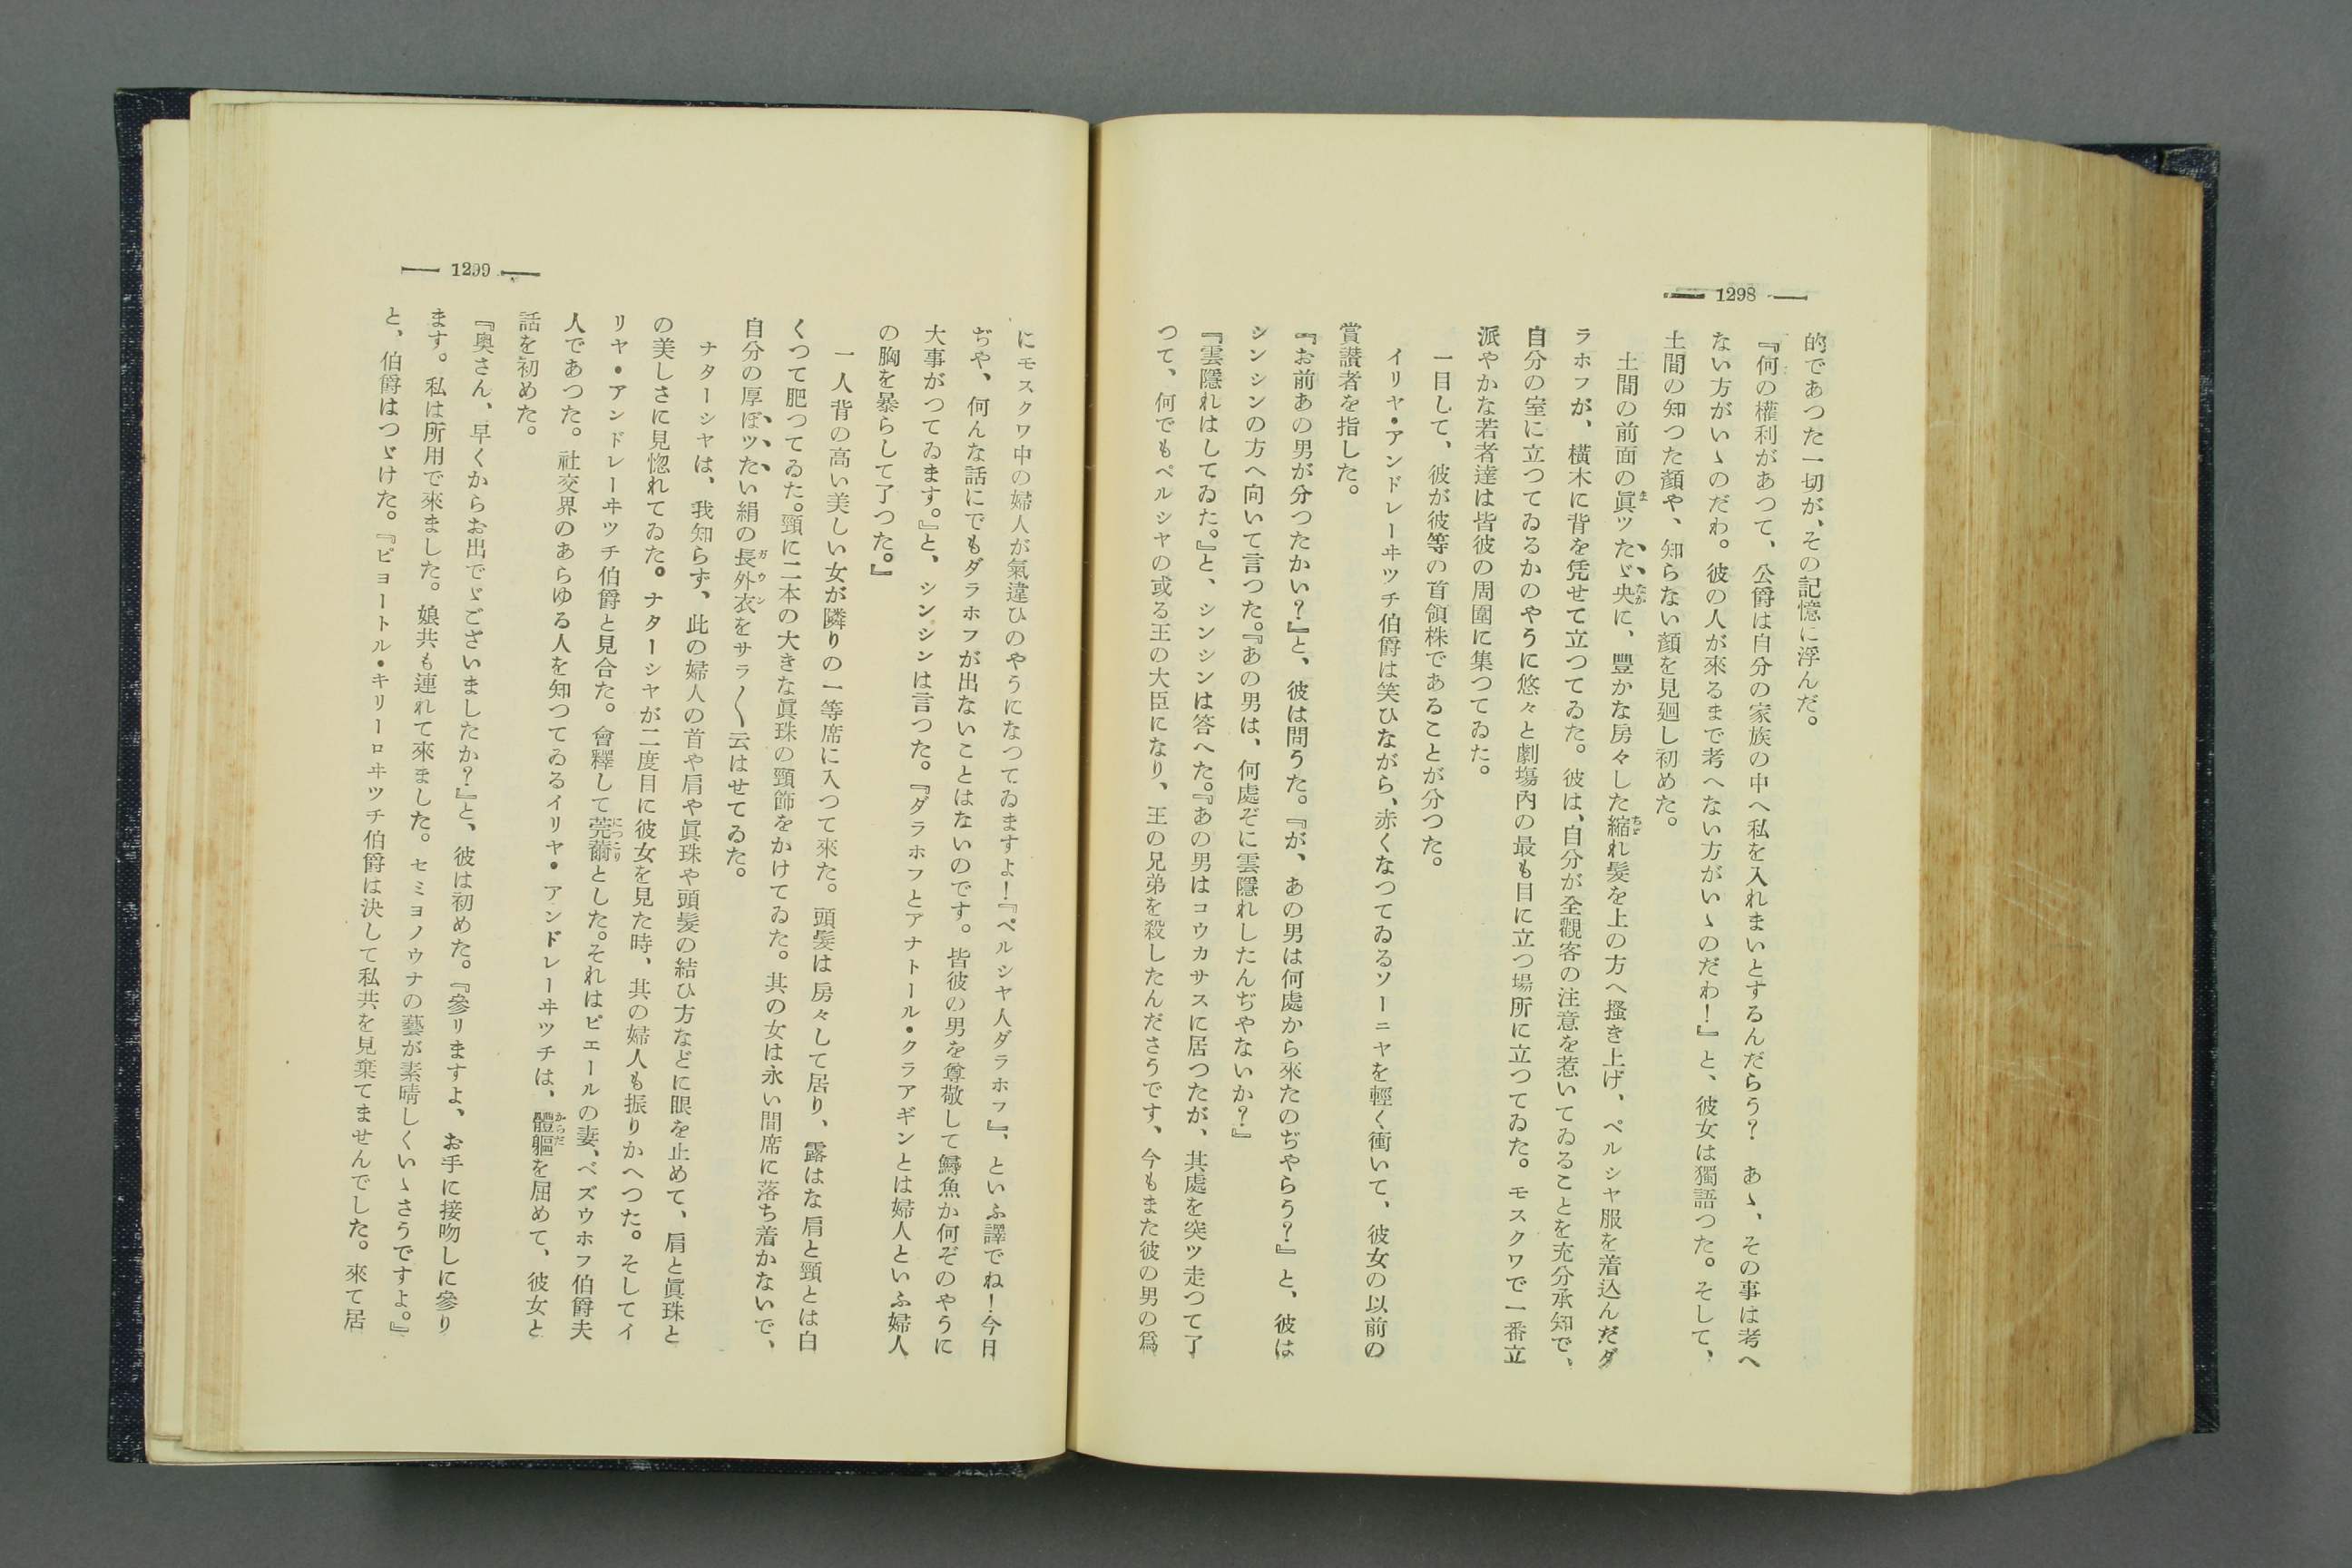 1298
的であつた一切が、その記憶に浮んだ。
『何の權利があつて、公爵は自分の家族の中へ私を入れまいとするんだらう？　あゝ、その事は考へ
ない方がいゝのだわ。彼の人が來るまで考へない方がいゝのだわ！』と、彼女は獨語つた。そして、
土間の知つた顏や、知らない顏を見廻し初めた。
土間の前面の眞ツたゞ央に、豐かな房々した縮れ髮を上の方へ搔き上げ、ペルシヤ服を着込んだダ
ラホフが、橫木に背を凭せて立つてゐた。彼は、自分が全觀客の注意を惹いてゐることを充分承知で、
自分の室に立つてゐるかのやうに悠々と劇場內の最も目に立つ場所に立つてゐた。モスクワで一番立
派やかな若者達は皆彼の周圍に集つてゐた。
一目して、彼が彼等の首領株であることが分つた。
イリヤ・アンドレーヰツチ伯爵は笑ひながら、赤くなつてゐるソーニヤを輕く衝いて、彼女の以前の
賞讃者を指した。
『お前あの男が分つたかい？』と、彼は問うた。『が、あの男は何處から來たのぢやらう？』と、彼は
シンシンの方へ向いて言つた。『あの男は、何處ぞに雲隱れしたんぢやないか？』
『雲隱れはしてゐた。』と、シンシンは答へた。『あの男はコウカサスに居つたが、其處を突ツ走つて了
つて、何でもペルシヤの或る王の大臣になり、王の兄弟を殺したんださうです、今もまた彼の男の爲
1299
にモスクワ中の婦人が氣違ひのやうになつてゐますよ！『ペルシヤ人ダラホフ』、といふ譯でね！今日
ぢや、何んな話にでもダラホフが出ないことはないのです。皆彼の男を尊敬して鱘魚か何ぞのやうに
大事がつてゐます。』と、シンシンは言つた。『ダラホフとアナトール・クラアギンとは婦人といふ婦人
の胸を暴らして了つた。』
一人背の高い美しい女が隣りの一等席に入つて來た。頭髮は房々して居り、露はな肩と頸とは白
くつて肥つてゐた。頸に二本の大きな眞珠の頸飾をかけてゐた。其の女は永い間席に落ち着かないで、
自分の厚ぼツたい絹の長外衣をサラ〱云はせてゐた。
ナターシヤは、我知らず、此の婦人の首や肩や眞珠や頭髮の結ひ方などに眼を止めて、肩と眞珠と
の美しさに見惚れてゐた。ナターシヤが二度目に彼女を見た時、其の婦人も振りかへつた。そしてイ
リヤ・アンドレーヰツチ伯爵と見合た。會釋して莞薾とした。それはピエールの妻、ベズウホフ伯爵夫
人であつた。社交界のあらゆる人を知つてゐるイリヤ・アンドレーヰツチは、體軀を屈めて、彼女と
話を初めた。
『奥さん、早くからお出でゞございましたか？』と、彼は初めた。『參りますよ、お手に接吻しに參り
ます。私は所用で來ました。娘共も連れて來ました。セミヨノウナの藝が素晴しくいゝさうですよ。』
と、伯爵はつゞけた。『ピヨートル・キリーロヰツチ伯爵は決して私共を見棄てませんでした。來て居